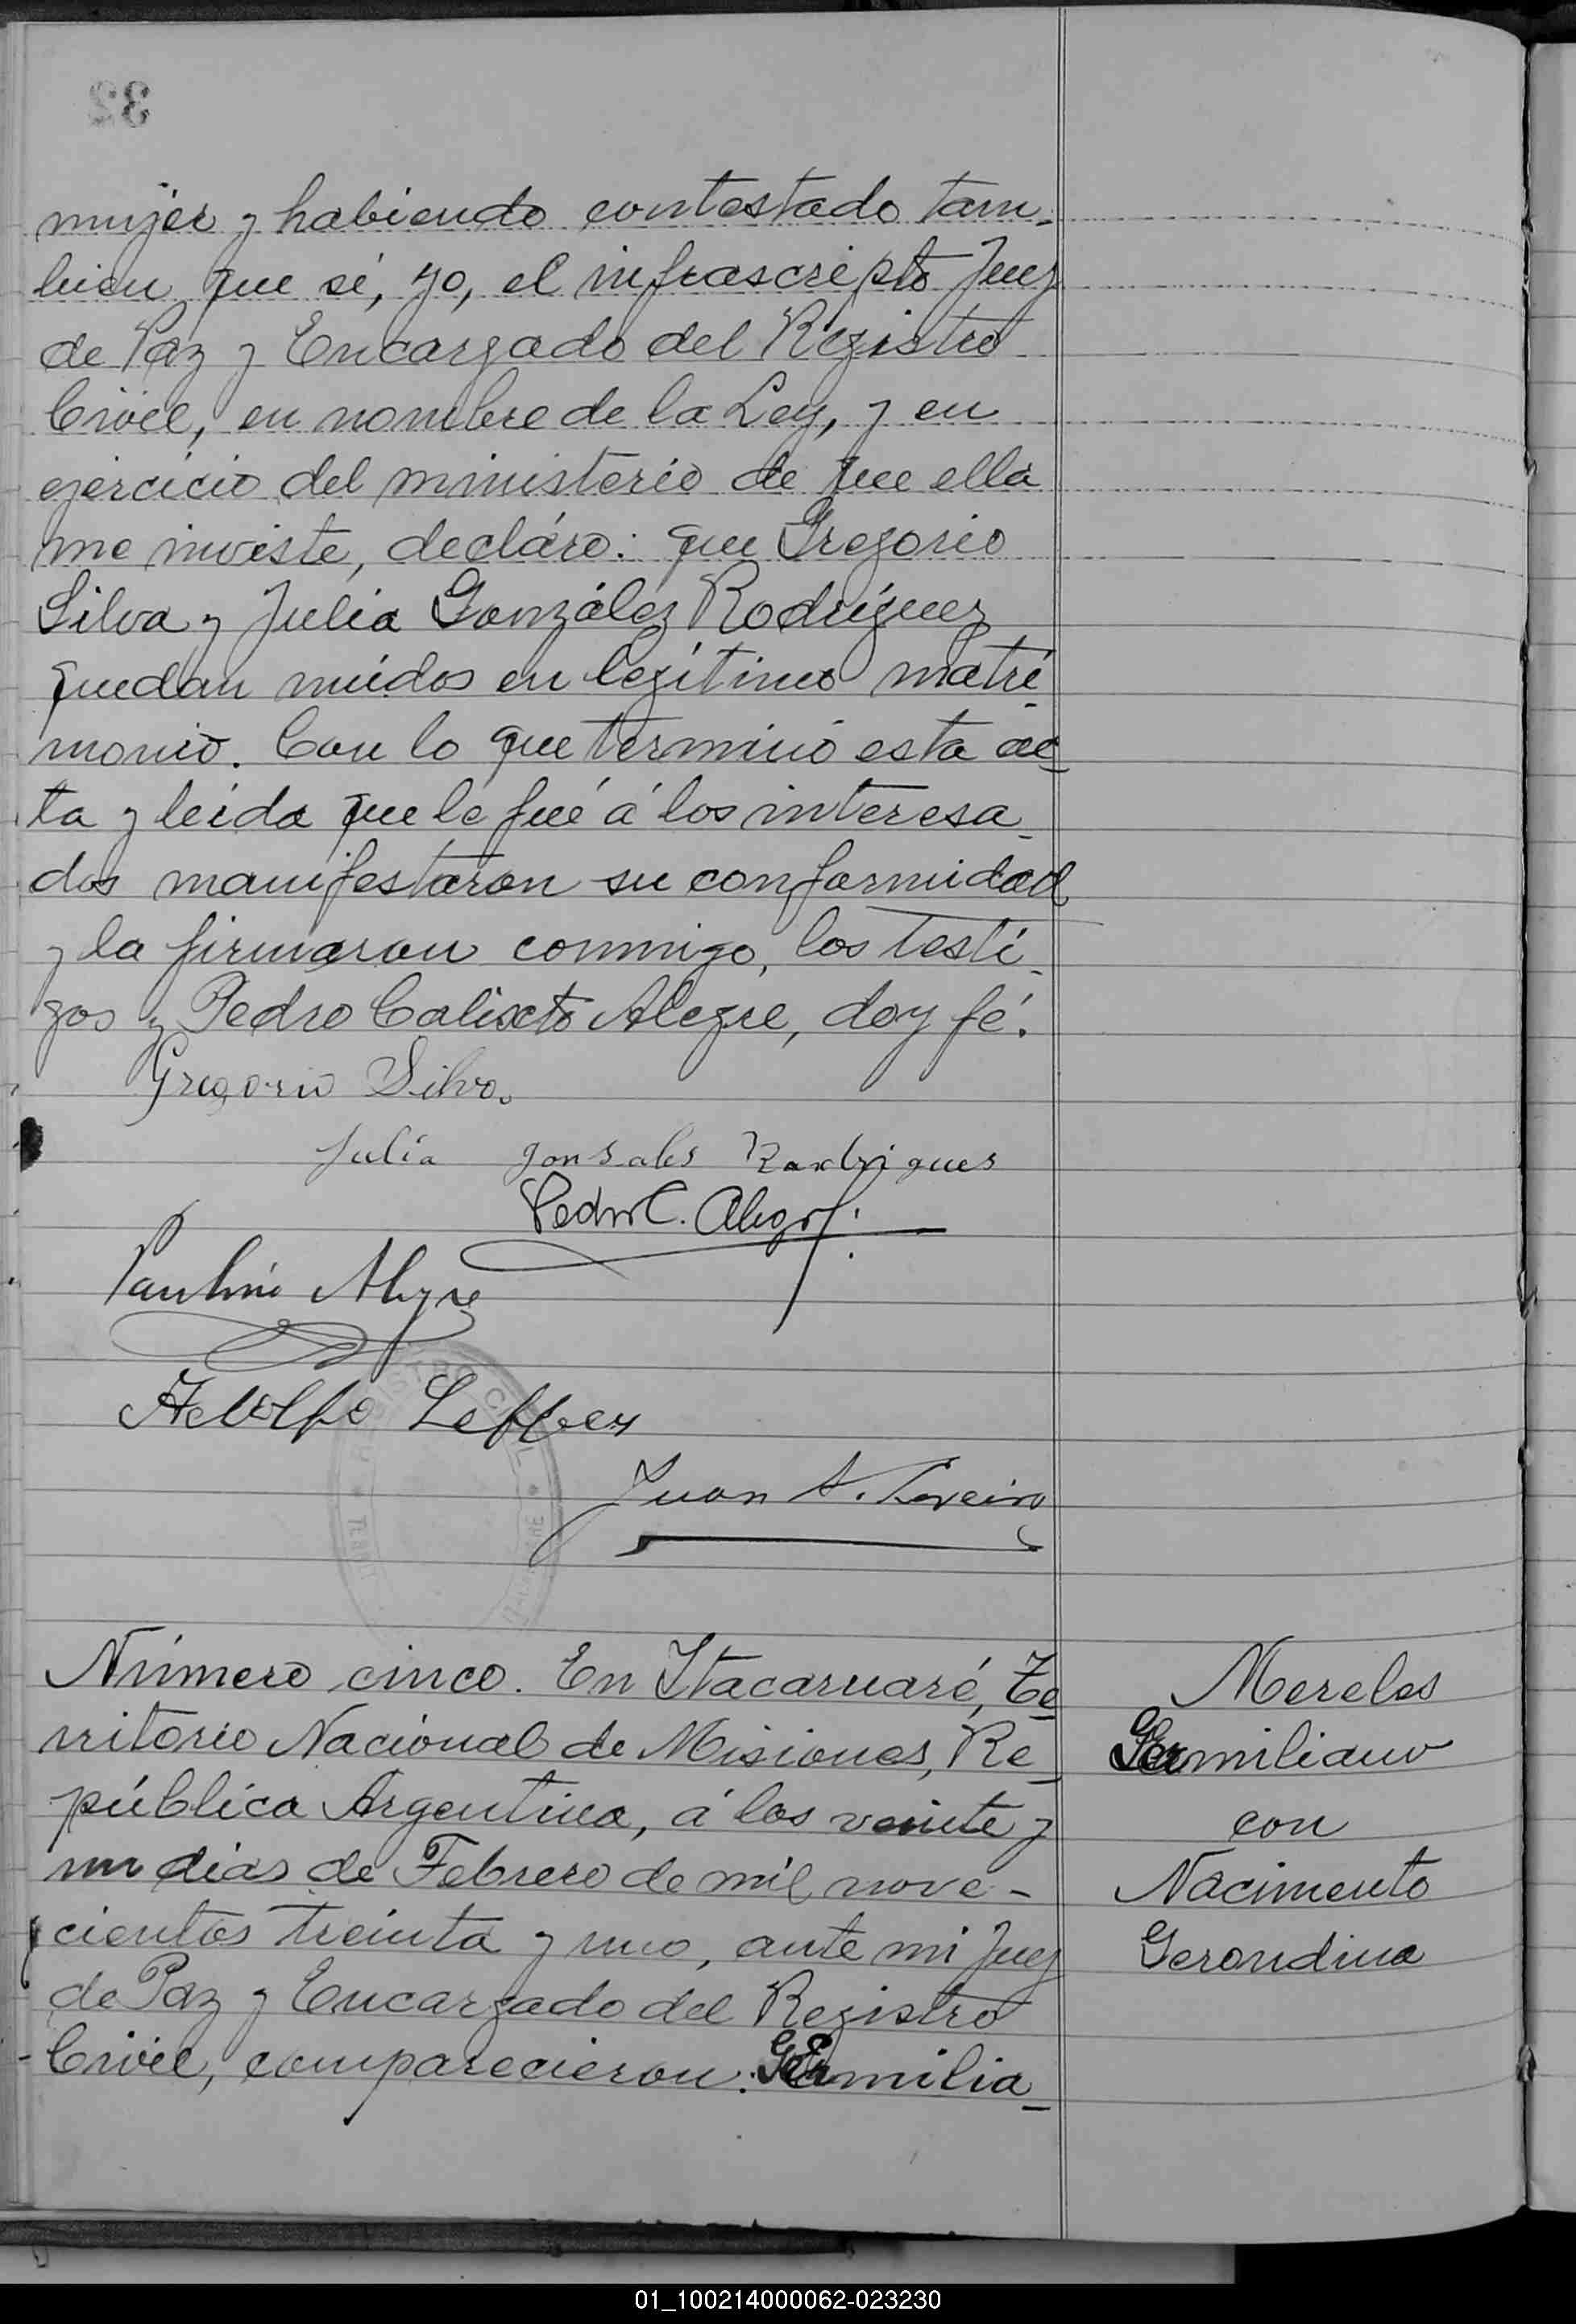 32
mujer y habiendo contestado tam-
bien que sí, yo, el infrascripto Juez
de Paz y Encargado del Registro
Civil, en nombre de la Ley, y en
ejercicio del ministerio de que ella
me inviste, decláro: que Gregorio
Silva y Julia González Rodríguez
quedan unidos en legítimo matri-
monio. Con lo que terminó esta ac-
ta y leida que le fué á los interesa-
dos manifestaron su conformidad
y la firmaron conmigo, los testi-
gos y Pedro Calixto Alegre, doy fé.
Gregorio Silva.
Julia Gonsales Rodrigues
Pedro C. Alegre
Paulino Alegre
Adolfo
Juan A.
Número cinco. En Itacaruaré, Te-
rritorio Nacional de Misiones, Re-
pública Argentina, á los veinte y
un dias de Febrero de mil nove-
cientos treinta y uno, ante mi Juez
de Paz y Encargado del Registro
Civil, comparecieron: Germilia-
Mereles
Germiliano
con
Nacimento
Gerondina
01_100214000062-023230